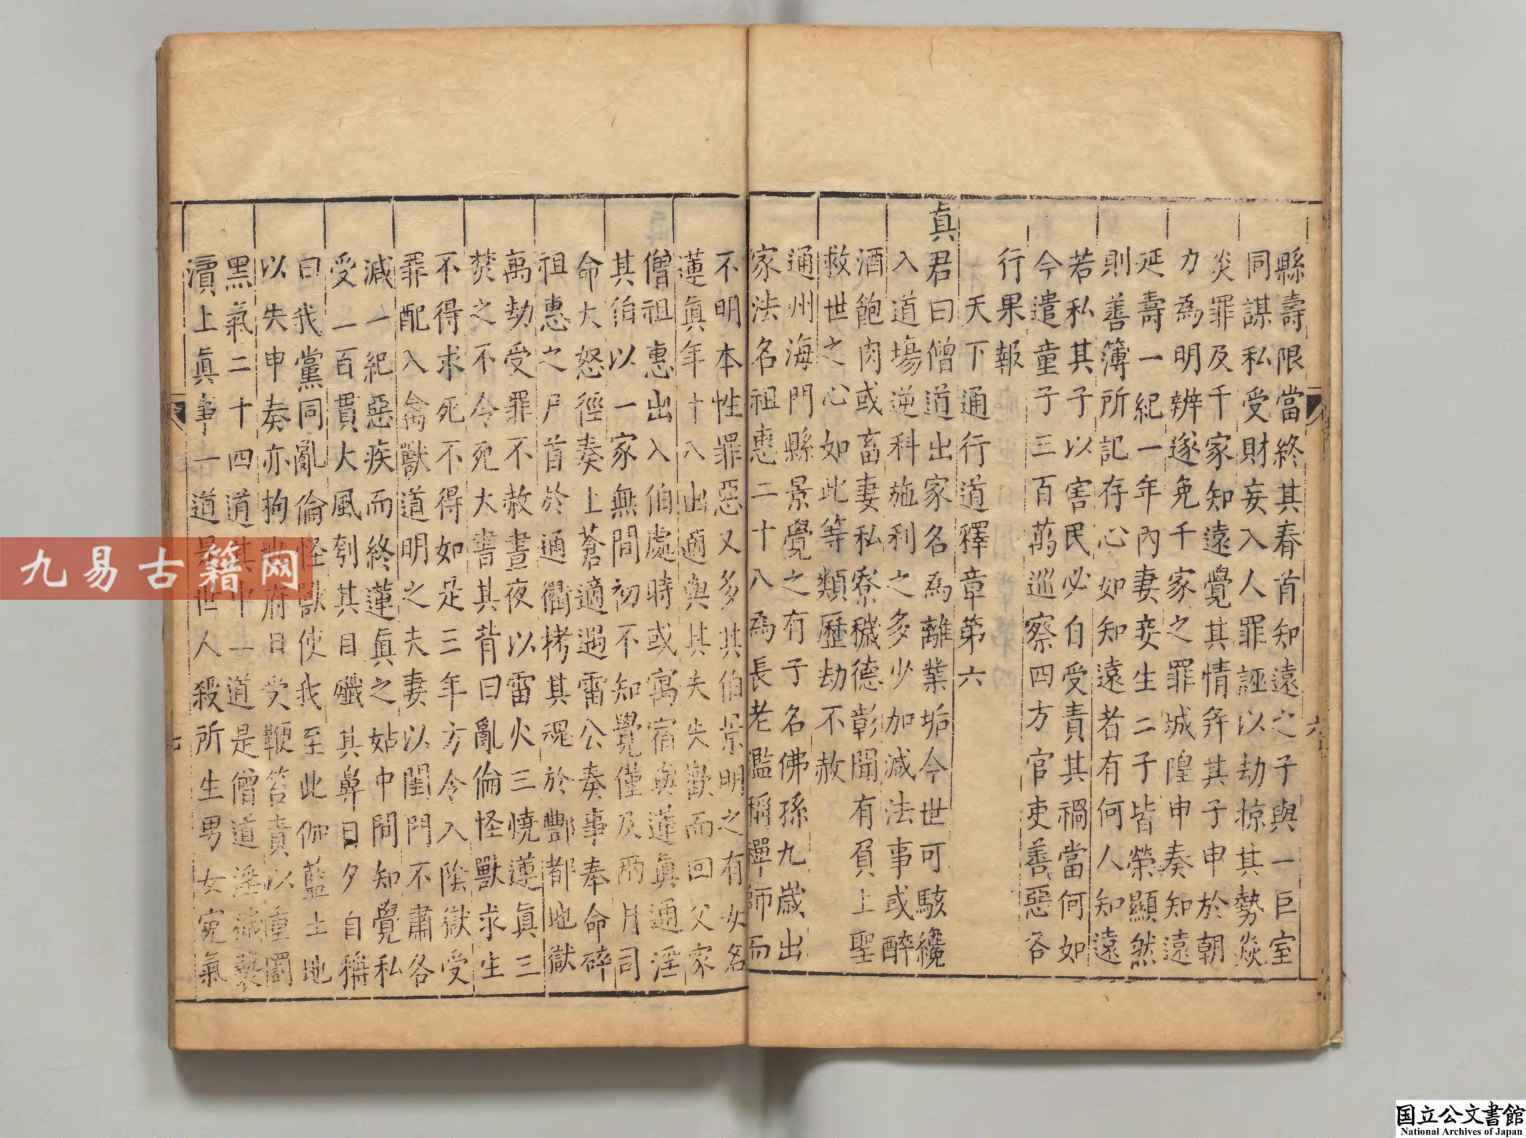 縣壽限當終其春首知遠之子與一巨室
同謀私受財妄入人罪誣以劫掠其勢焱
炎罪及千家知遠覺其情弃其子申於朝
力為明辨遂免千家之罪城隍申奏知遠
延壽一紀一年內妻妾生二子皆榮顯然
則善簿所記存心如知遠者有何人知遠
若私其子以害民必自受責其禍當何如
今遣童子三百萬巡察四方官吏善惡各
行果報
天下通行道釋章第六
真君曰僧道出家名為離業垢今世可駭纔
入道場逆科施利之多少加減法事或醉
酒飽肉或畜妻私寮穢德彰聞有負上聖
救世之心如此等類歷劫不赦
通州海門縣景覺之有子名佛孫九歲出
家法名祖惠二十八為長老濫稱禪師而
不明本性罪惡又多其伯景明之有女名
蓮真年十八出適與其夫失歡而回父家
僧祖惠出入伯處時或寓宿與蓮真通淫
其伯以一家無間初不知覺僅及兩月司
命大怒徑奏上蒼適遇雷公奏事奉命碎
祖惠之尸首於通衢拷其魂於酆都地獄
萬劫受罪不赦晝夜以雷火三燒蓮真三
焚之不令死大書其背曰亂倫怪獸求生
不得求死不得如是三年方令入陰獄受
罪配入禽獸道明之夫妻以閨門不肅各
減一紀惡疾而終蓮真之姑中間知覺私
受一百貫大風刳其目殲其鼻日夕自稱
曰我黨同亂倫怪獸使我至此伽藍土地
以失申奏亦拘地府日受鞭笞責以重罰
黑氣二十四道其中一道是僧道淫穢褻
瀆上真事一道是世人殺所生男女冤氣
六
七
九易古籍网
国立公文書館
National Archives of Japan